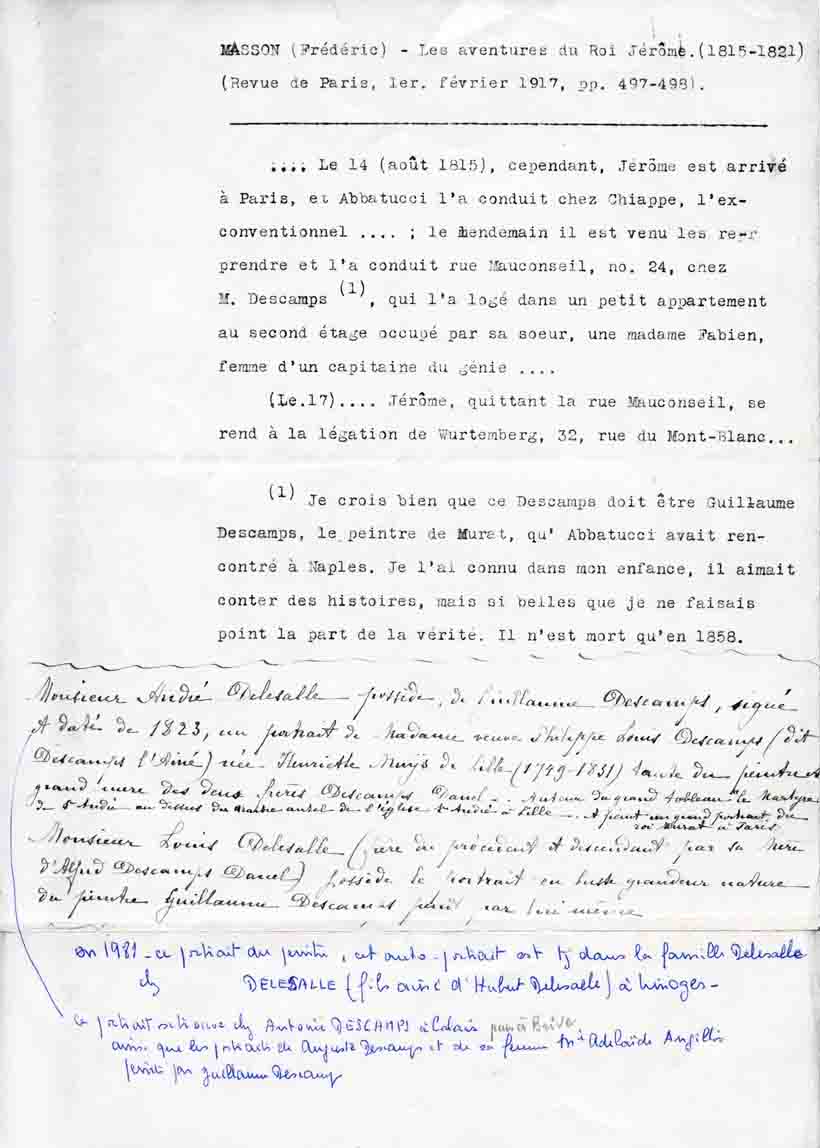 MASSON (Frédéric) - Les aventures du Roi Jérôme.(1815-1821)
(Revue de Paris, 1er. février 1917, pp. 497-498).
.... Le 14 (août 1815), cependant, Jérôme est arrivé
à Paris, et Abbatucci l'a conduit chez Chiappe, l'ex-
conventionnel .... ; le lendemain il est venu les re-
prendre et l'a conduit rue Mauconseil, no. 24, chez
M. Descamps (1), qui l'a logé dans un petit appartement
au second étage occupé par sa soeur, une madame Fabien,
femme d'un capitaine du génie ....
(Le.17).... Jérôme, quittant la rue Mauconseil, se
rend à la légation de Wurtemberg, 32, rue du Mont-Blanc...
(1) Je crois bien que ce Descamps doit être Guillaume
Descamps, le peintre de Murat, qu' Abbatucci avait ren-
contré à Naples. Je l'ai connu dans mon enfance, il aimait
conter des histoires, mais si belles que je ne faisais
point la part de la vérité. Il n'est mort qu'en 1858.
Monsieur André Delesalle possède, de Guillaume Descamps, signé
et daté de 1823, un portrait de Madame veuve Philippe Louis Descamps (dit
Descamps l'Ainé) née Henriette Muijs de Lille (1749-1831) tante du peintre et
grand'mere des deux frères Descamps Danel -. Auteur du grand tableau "le Martyre
de St André au dessus du maitre autel de l'église St André à Lille -. A peint un grand portrait du
roi Murat à Paris
Monsieur Louis Delesalle (frère du précédent et descendant par sa mère
d'Alfred Descamps Danel) possède le portrait en buste grandeur nature
du peintre Guillaume Descamps peint par lui même
en 1981 - ce portrait du peintre, cet auto-portrait est tj dans la famille Delesalle
chz DELESALLE (fils ainé d'Hubert Delesalle) à Limoges -
ce portrait se trouve chz Antoine DESCAMPS à Calais puis à Brive
ainsi que les portraits de Auguste Descamps et de sa femme Adélaïde Angillis
peints par Guillaume Descamps